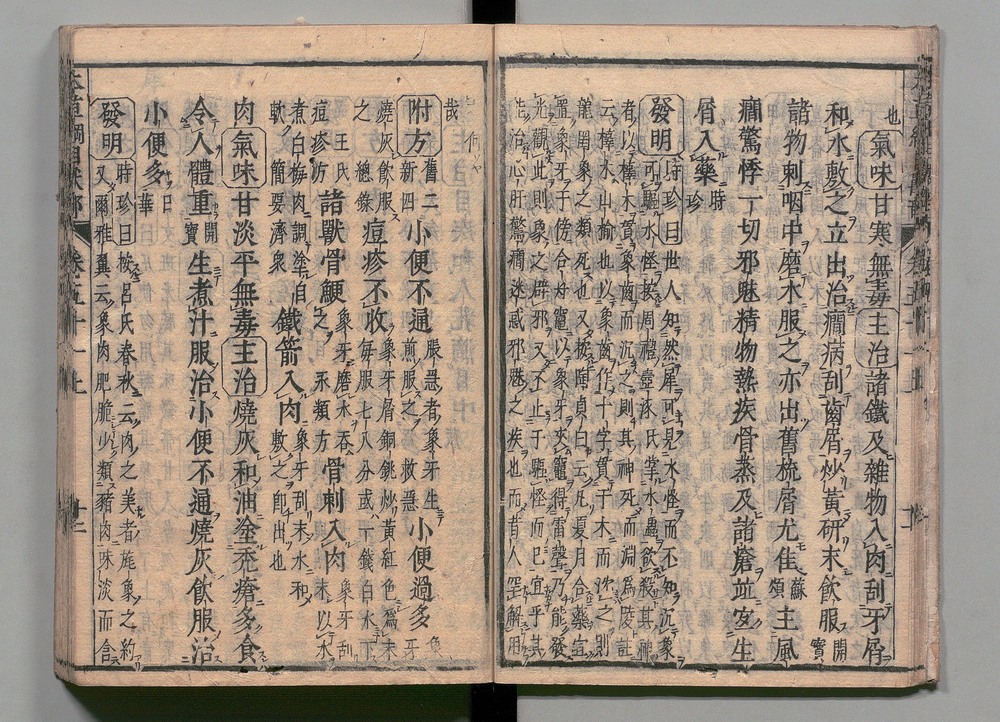 也氣味甘寒無毒主治諸鐵及雜物入肉刮牙屑
和水敷之立出治癇病刮齒屑炒黃研末飲服開寶
諸物刺咽中磨水服之亦出舊梳屑尤佳蘇頌主風
癇驚悸一切邪魅精物熱疾骨蒸及諸瘡並宜生
屑入藥時珍
發明時珍曰世人知然犀可見水怪而不知沉象
可驅水怪按周禮壺涿氏掌水蟲欲殺其神
者以橭木貫象齒而沉之則其神死而淵為陵註
云橭木山榆也以象齒作十字貫于木而沉之則
龍罔象之類死也又按陶貞白云凡夏月合藥宜
置象牙于傍合丹竈以象牙夾竈得雷聲乃能發
光觀此則象之辟邪又不止于驅怪而已宜乎其
能治心肝驚癇迷惑邪魅之疾也而昔人罕解用
何哉
附方舊二新四小便不通脹急者象牙生煎服之救急小便過多象牙
燒灰飲服之總錄痘疹不收象牙屑銅銚炒黃紅色為末每服七八分或一錢白水下
王氏痘疹方諸獸骨鯁象牙磨水吞之永類方骨刺入肉象牙刮末以水
煮白梅肉調塗自軟簡要濟衆鐵箭入肉象牙刮末水和敷之即出也
肉氣味甘淡平無毒主治燒灰和油塗禿瘡多食
令人體重開寶生煮汁服治小便不通燒灰飲服治
小便多日華
發明時珍曰按呂氏春秋云肉之美者旄象之約
又爾雅翼云象肉肥脆少類豬肉味淡而含